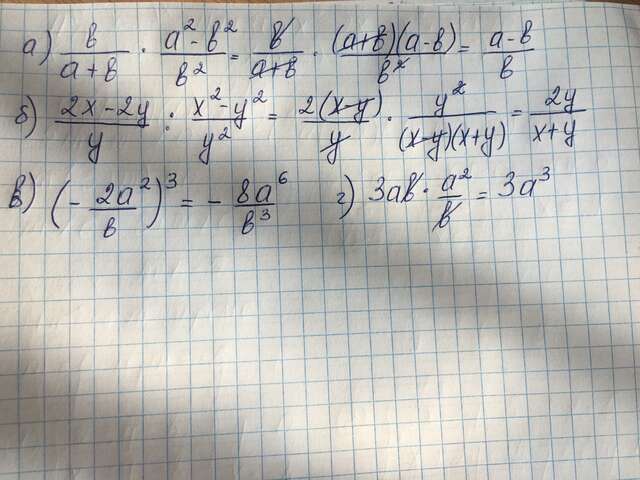 а) b/(a+b) · (a²-b²)/b² = b/(a+b) · ((a+b)(a-b))/b² = (a-b)/b
б) (2x-2y)/y : (x²-y²)/y² = 2(x-y)/y · y²/((x-y)(x+y)) = 2y/(x+y)
в) (-2a²/b)³ = -8a⁶/b³ г) 3ab · a²/b = 3a³